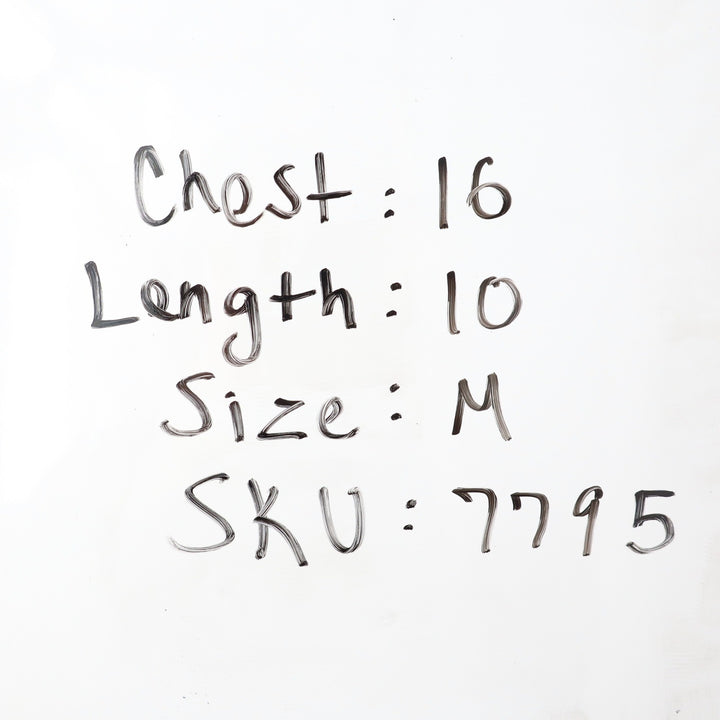 Chest : 16
Length : 10
Size : M
SKU : 7795